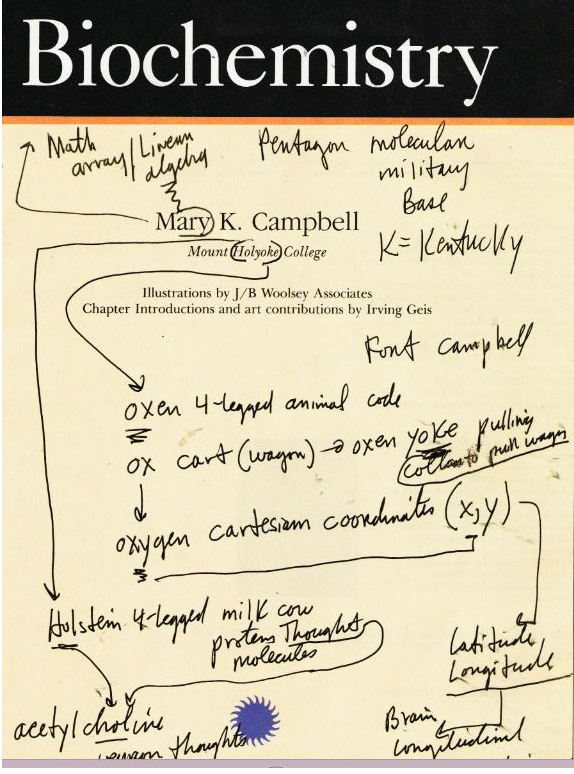 Biochemistry
Math
array/Linear
algebra
Pentagon molecular
military
Base
K=Kentucky
Mary K. Campbell
Mount Holyoke College
Illustrations by J/B Woolsey Associates
Chapter Introductions and art contributions by Irving Geis
Font campbell
oxen 4-legged animal code
ox cart (wagon) → oxen yoke pulling
to pull wagon
oxygen cartesian coordinates (x,y)
Holstein 4-legged milk cow
protens Thought
molecules
Latitude
Longitude
acetylcholine
neuron thoughts
Brain
Longitudinal